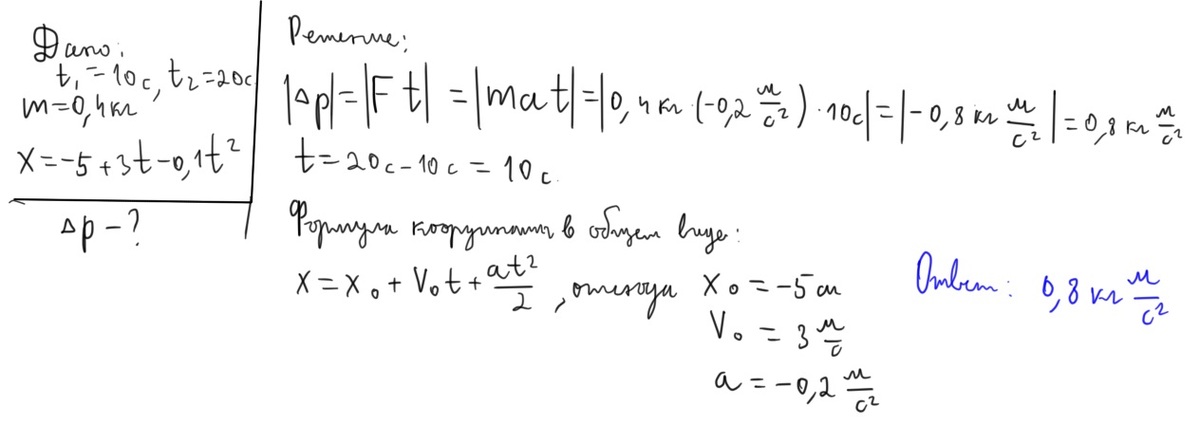 Дано:
t₁=10с, t₂=20с
m=0,4кг
x=-5+3t-0,1t²
Δp-?
Решение:
|Δp|=|Ft|=|mat|=|0,4кг(-0,2 м/с²)·10с|=|-0,8 кг м/с²|=0,8 кг м/с²
t=20с-10с=10с.
Формула координаты в общем виде:
x=x₀+V₀t+at²/2, откуда x₀=-5м
V₀=3 м/с
a=-0,2 м/с²
Ответ: 0,8 кг м/с²